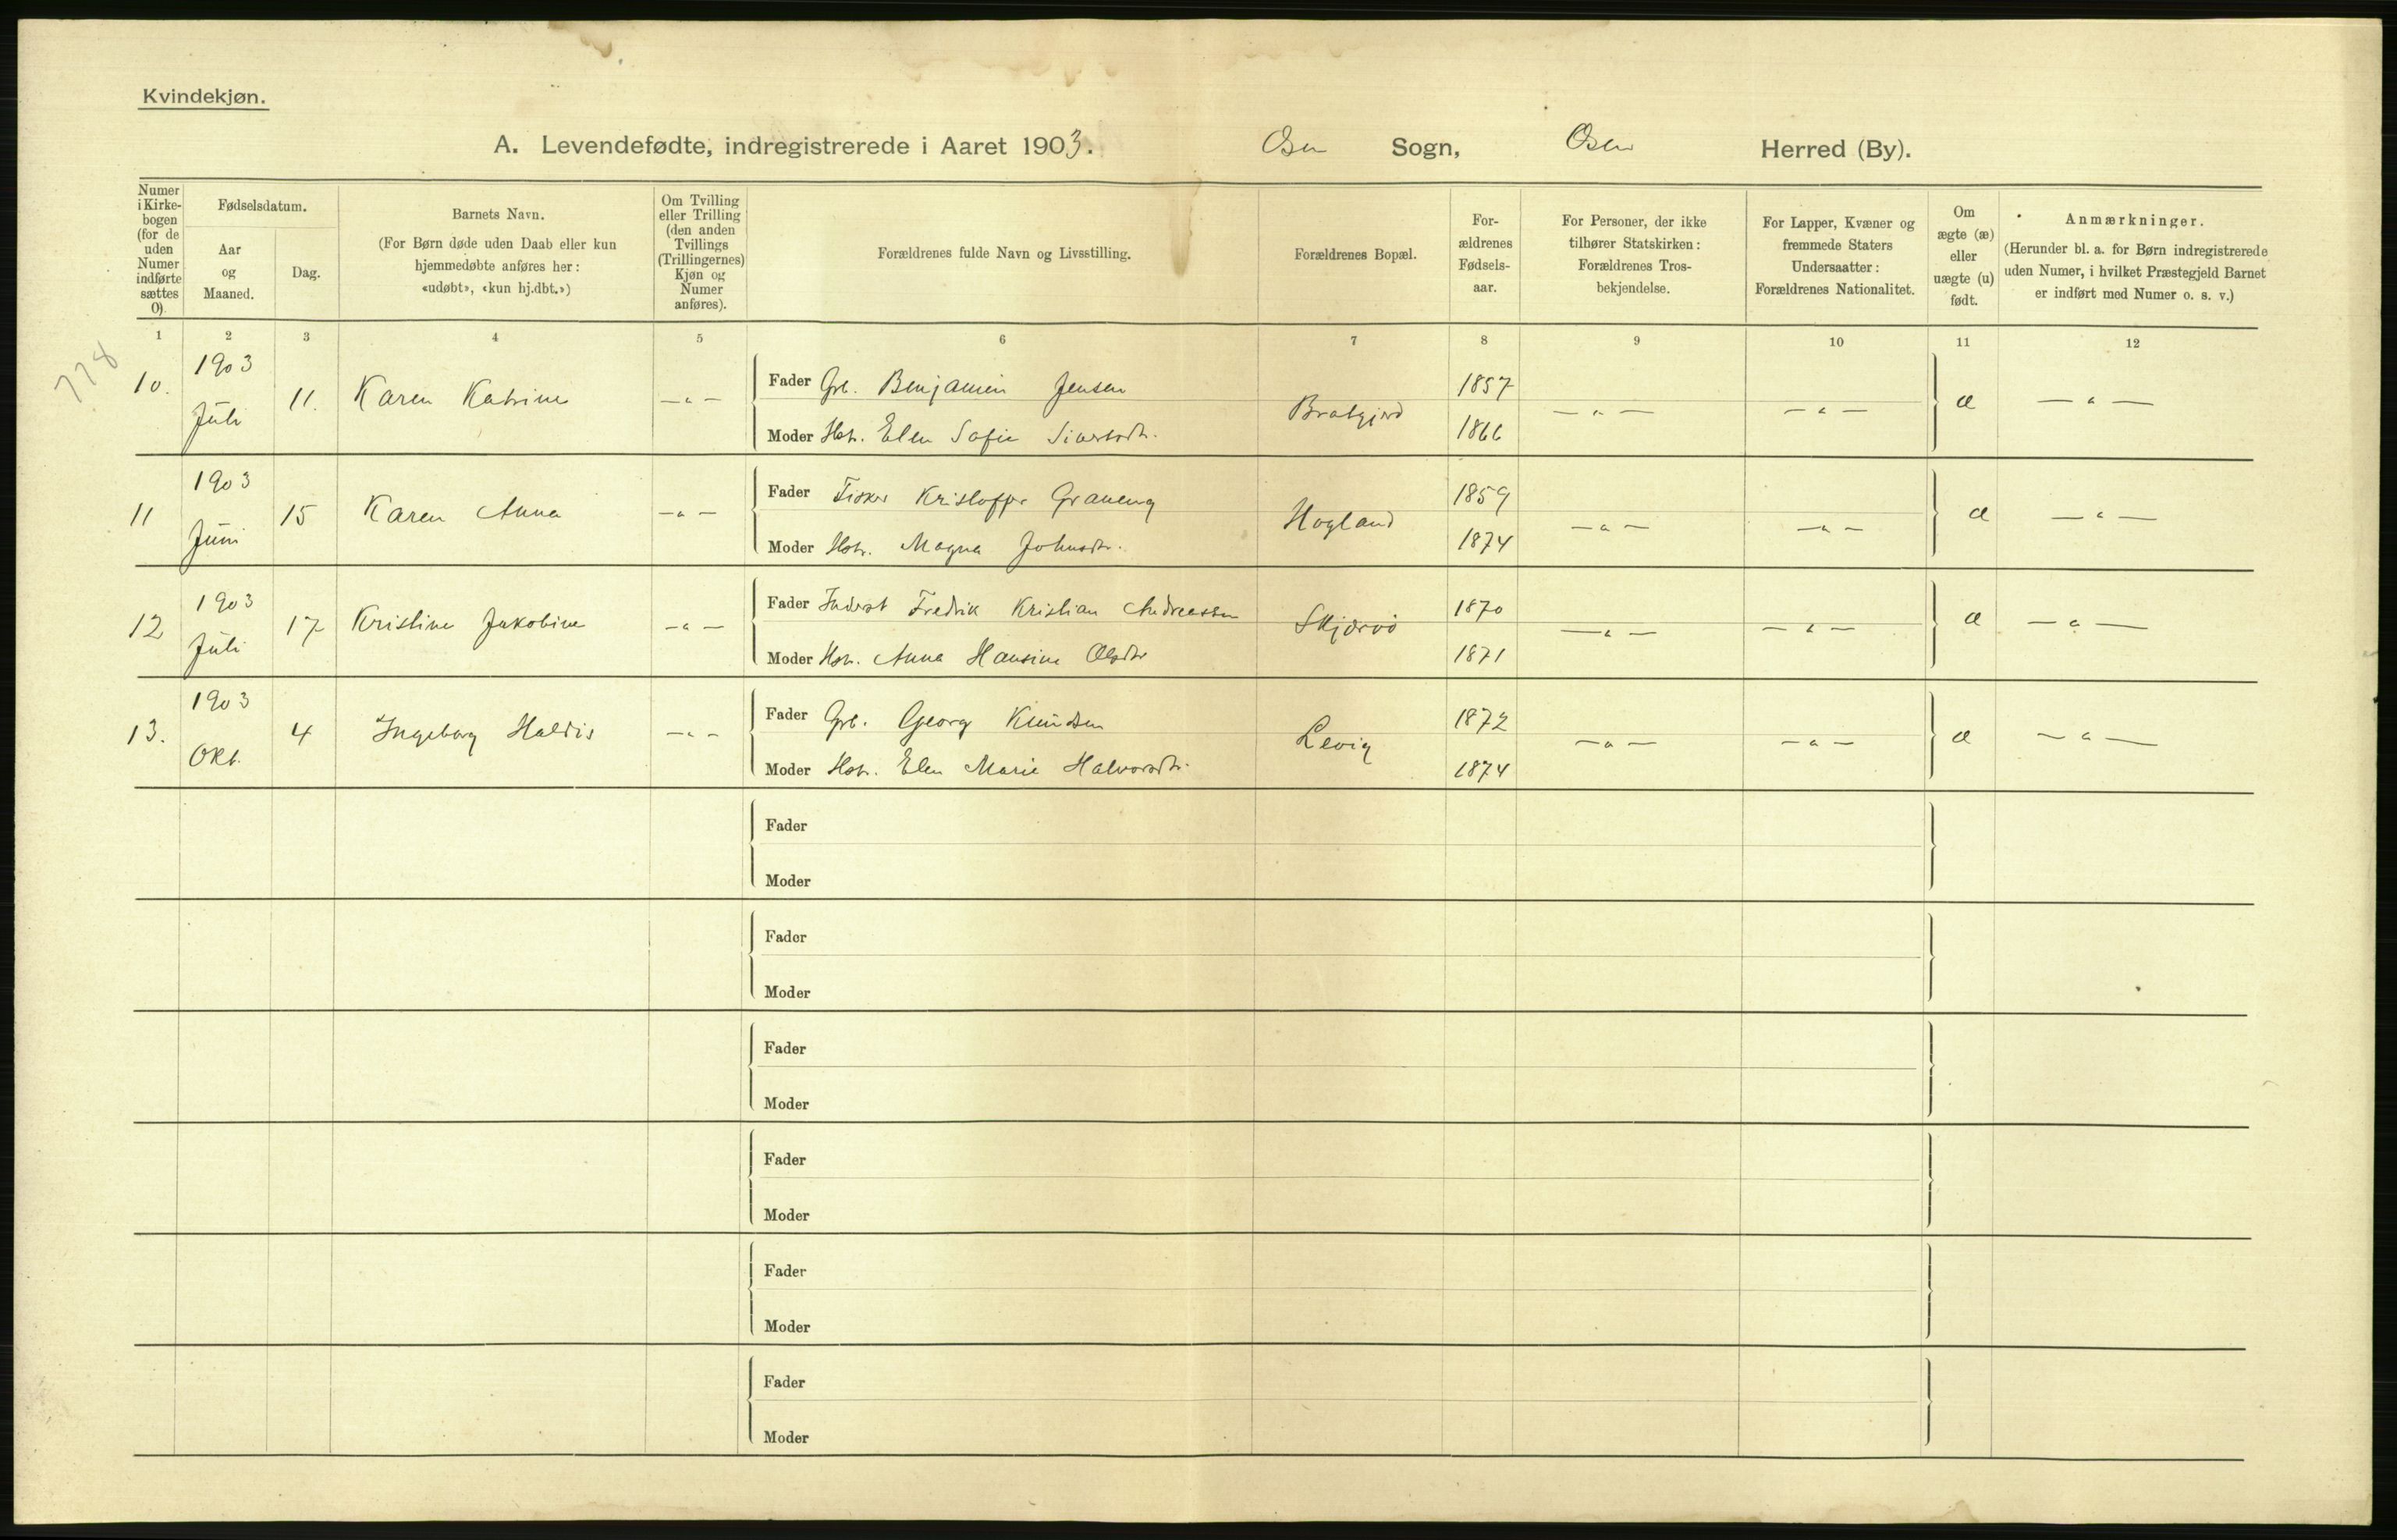 Kvindekjøn.
A. Levendefødte, indregistrerede i Aaret 1903. Osen Sogn, Osen Herred (By).
Numer i Kirkebogen (for de uden Numer indførte sættes 0).
Fødselsdatum.
Aar og Maaned.
Dag.
Barnets Navn.
(For Børn døde uden Daab eller kun hjemmedøbte anføres her: «udøbt», «kun hj.dbt.»)
Om Tvilling eller Trilling (den anden Tvillings (Trillingernes) Kjøn og Numer anføres).
Forældrenes fulde Navn og Livsstilling.
Forældrenes Bopæl.
Forældrenes Fødselsaar.
For Personer, der ikke tilhører Statskirken: Forældrenes Trosbekjendelse.
For Lapper, Kvæner og fremmede Staters Undersaatter: Forældrenes Nationalitet.
Om ægte (æ) eller uægte (u) født.
Anmærkninger.
(Herunder bl. a. for Børn indregistrerede uden Numer, i hvilket Præstegjeld Barnet er indført med Numer o. s. v.)
1 2 3 4 5 6 7 8 9 10 11 12
778
10. 1903 Juli 11. Karen Katrine —"—
Fader Grb. Benjamin Jensen
Moder Hst. Elen Sofie Sivertsdtr.
1857
1866
—"— —"— æ —"—
11 1903 Juni 15 Karen Anna —"—
Fader Fisker Kristoffer
Moder Hst. Magna Johnsdtr.
Hogland
1859
1874
—"— —"— æ —"—
12 1903 Juli 17 Kristine Jakobine —"—
Fader Inderst Fredrik Kristian Andreassen
Moder Hst. Anna Hansine Olsdtr
Skjærvö
1870
1871
—"— —"— æ —"—
13. 1903 Okt. 4 Ingeborg Haldis —"—
Fader Grb. Georg Knudsen
Moder Hst. Elen Marie Halvorsdtr.
Levig
1872
1874
—"— —"— æ —"—
Fader
Moder
Fader
Moder
Fader
Moder
Fader
Moder
Fader
Moder
Fader
Moder